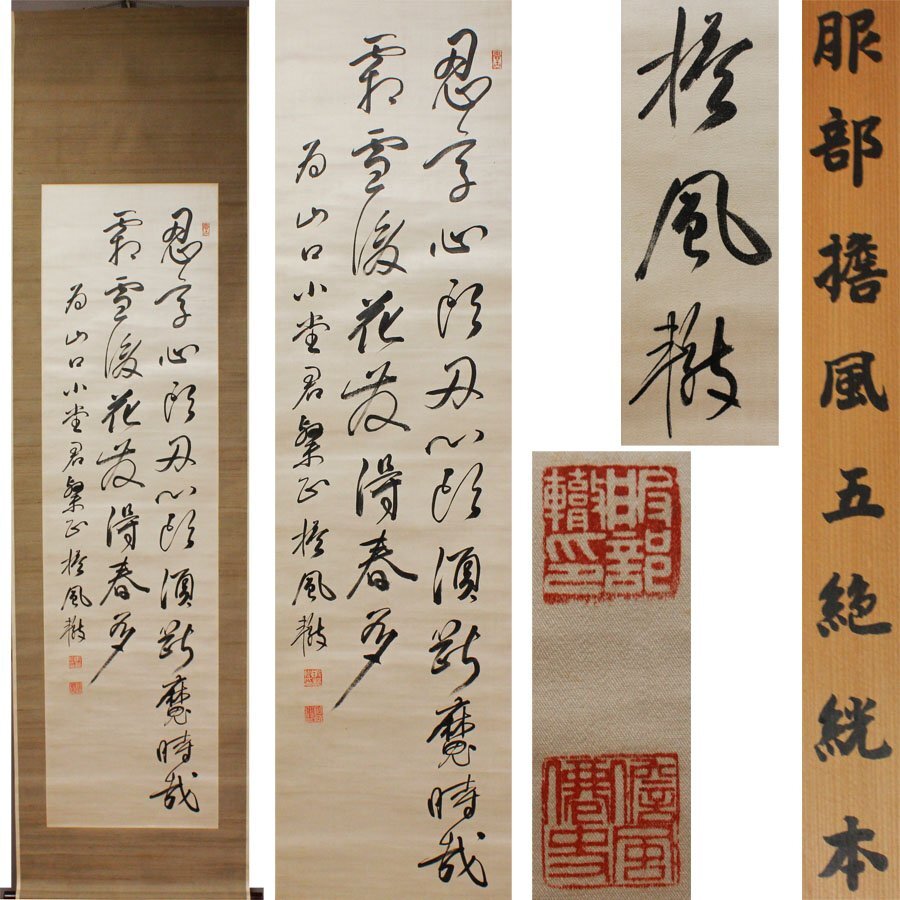 忍字心頭刃心頭須斷魔時哉
霜雪後花發得春多
為山口小堂君粲正 擔風轍
忍字心頭刃心頭須斷魔時哉
霜雪後花發得春多
為山口小堂君粲正 擔風轍
擔風轍
服部
轍印
服部擔風五絶絖本